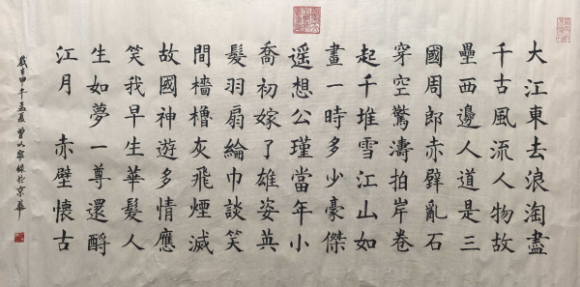 大江東去浪淘盡
千古風流人物故
壘西邊人道是三
國周郎赤壁亂石
穿空驚濤拍岸卷
起千堆雪江山如
畫一時多少豪傑
遥想公瑾當年小
喬初嫁了雄姿英
髮羽扇綸巾談笑
間檣櫓灰飛煙滅
故國神遊多情應
笑我早生華髮人
生如夢一尊還酹
江月 赤壁懷古
甲午孟夏曾於京華